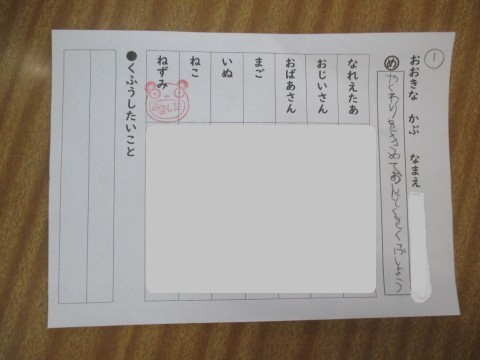 ①
おおきな かぶ なまえ
め やくわりをきめておんどくをくふうしよう
なれえたあ
おじいさん
おばあさん
まご
いぬ
ねこ
ねずみ
●くふうしたいこと